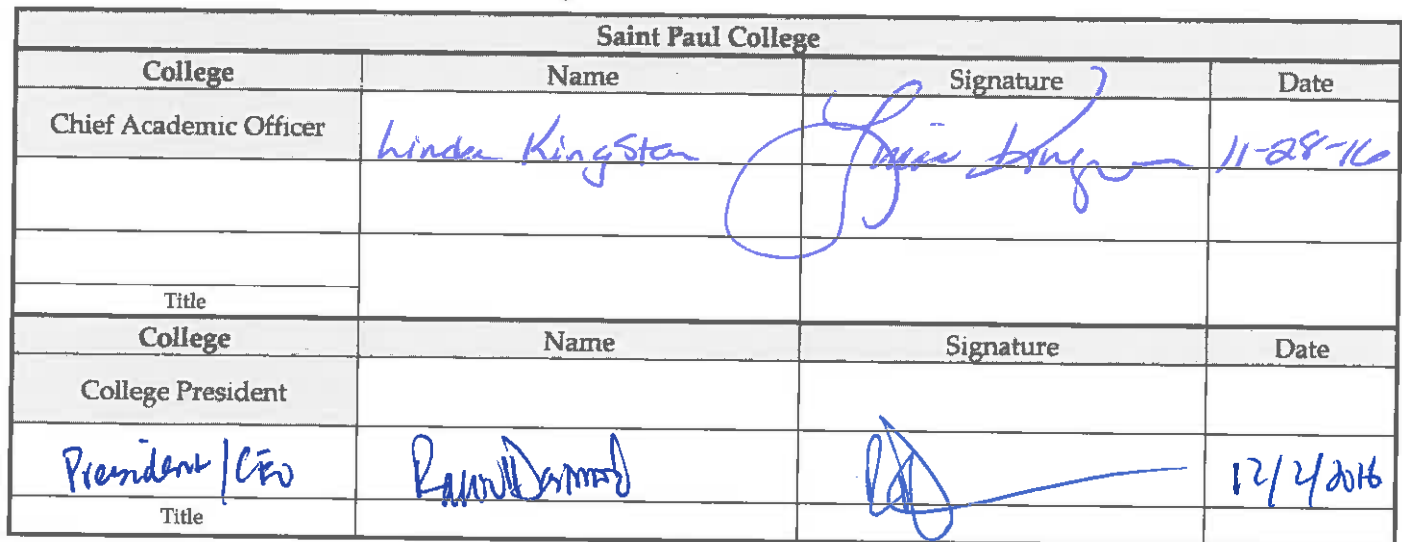 Saint Paul College
College Name Signature Date
Chief Academic Officer Linda Kingston 11-28-16
Title
College Name Signature Date
College President
President/CEO 12/2/2016
Title